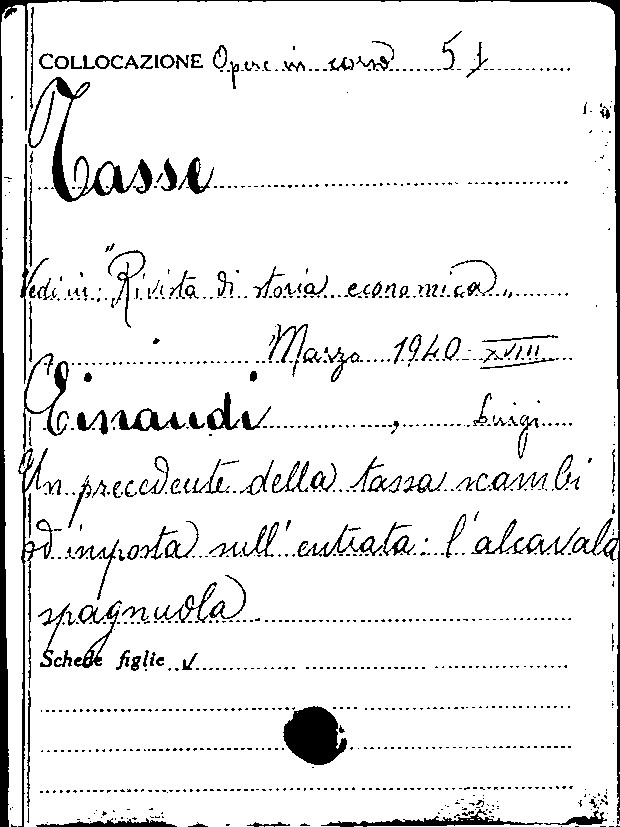 COLLOCAZIONE Opere in corso 51
Tasse
Vedi in: "Rivista di storia economica„
Marzo 1940-XVIII
Einaudi, Luigi
Un precedente della tassa scambi
od imposta sull'entrata: l'alcavala
spagnuola
Schede figlie √